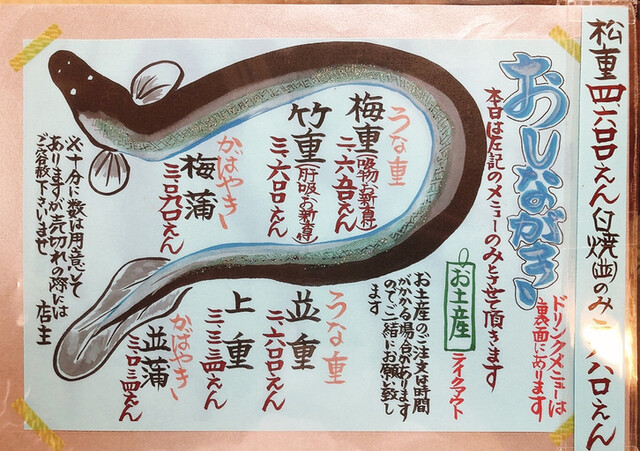 松重四、六〇〇えん(白焼(並)のみ 二、六〇〇えん
おしながき
本日は左記のメニューのみとさせて頂きます
ドリンクメニューは
裏面にあります
うな重
梅重(吸物お新香)
二、六五〇えん
竹重(肝吸お新香)
三、六〇〇えん
かばやき
梅蒲
三〇九〇えん
お土産
テイクアウト
お土産のご注文は時間
がかかる場合があります
ので、ご一緒にお願い致し
ます
うな重
並重
二、六〇〇えん
上重
三、三三四えん
かばやき
並蒲
三〇三四えん
※十分に数は用意して
ありますが売切れの際には
ご容赦下さいませ
店主